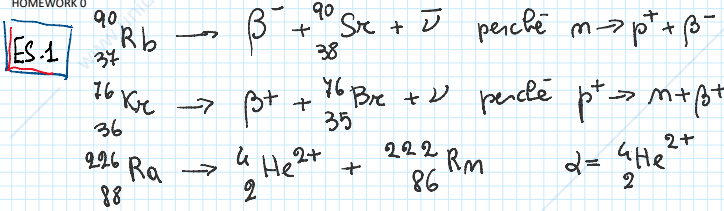 HOMEWORK 0
ES.1
⁹⁰₃₇Rb → β⁻ + ⁹⁰₃₈Sr + ν̄ perché n → p⁺ + β⁻
⁷⁶₃₆Kr → β⁺ + ⁷⁶₃₅Br + ν perché p⁺ → n + β⁺
²²⁶₈₈Ra → ⁴₂He²⁺ + ²²²₈₆Rn α = ⁴₂He²⁺